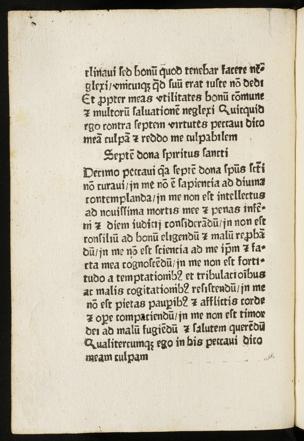 clinavi sed bonū quod tenebar facere nē-
glexi / vnicuiqꝫ qd suū erat iuste nō dedi
Et ꝓpter meas vtilitates bonū cōmune
⁊ multorū saluationē neglexi Quicquid
ego contra septem virtutes peccaui dico
meā culpā ⁊ reddo me culpabilem
Septē dona spiritus sancti
Decimo peccaui qa septē dona spūs scti
nō curaui / in me nō ē sapiencia ad diuina
contemplanda / in me non est intellectus
ad nouissima mortis mee ⁊ penas infer-
ni ⁊ diem iudicij considerādū / in non est
consiliū ad bonū eligendū ⁊ malū reꝓbā
dū / in me nō est sciencia ad me ipm̄ ⁊ fa-
cta mea cognoscēdū / in me non est forti-
tudo a temptationibꝫ et tribulacioibus
ac malis cogitationibꝫ resistendū / in me
nō est pietas paupibꝫ ⁊ afflictis corde
⁊ ope compaciendū / in me non est timor
dei ad malū fugiēdū ⁊ salutem querēdū
Qualitercumqꝫ ego in his peccaui dico
meam culpam